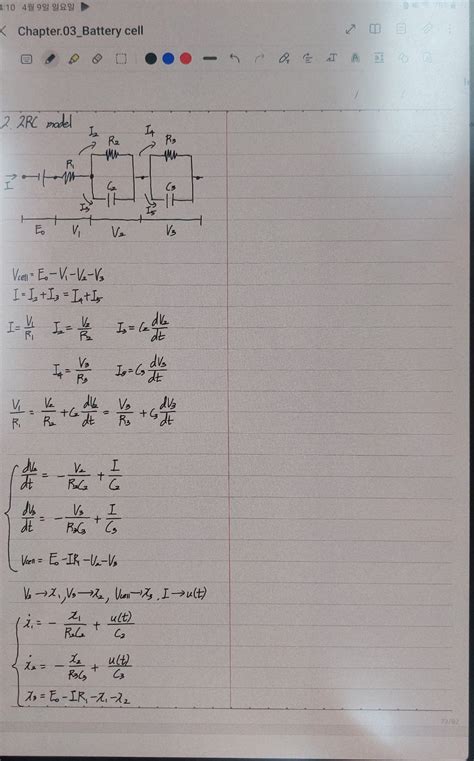 4:10 4월 9일 일요일
Chapter.03_Battery cell
2. 2RC model
I₂ R₂ I₄ R₃
I R₁ C₂ C₃
I₃ I₅
E₀ V₁ V₂ V₃
Vcell = E₀ - V₁ - V₂ - V₃
I = I₂ + I₃ = I₄ + I₅
I = V₁/R₁ I₂ = V₂/R₂ I₃ = C₂ dV₂/dt
I₄ = V₃/R₃ I₅ = C₃ dV₃/dt
V₁/R₁ = V₂/R₂ + C₂ dV₂/dt = V₃/R₃ + C₃ dV₃/dt
dV₂/dt = - V₂/R₂C₂ + I/C₂
dV₃/dt = - V₃/R₃C₃ + I/C₃
Vcell = E₀ - IR₁ - V₂ - V₃
V₂ → x₁, V₃ → x₂, Vcell → x₃, I → u(t)
ẋ₁ = - x₁/R₂C₂ + u(t)/C₂
ẋ₂ = - x₂/R₃C₃ + u(t)/C₃
x₃ = E₀ - IR₁ - x₁ - x₂